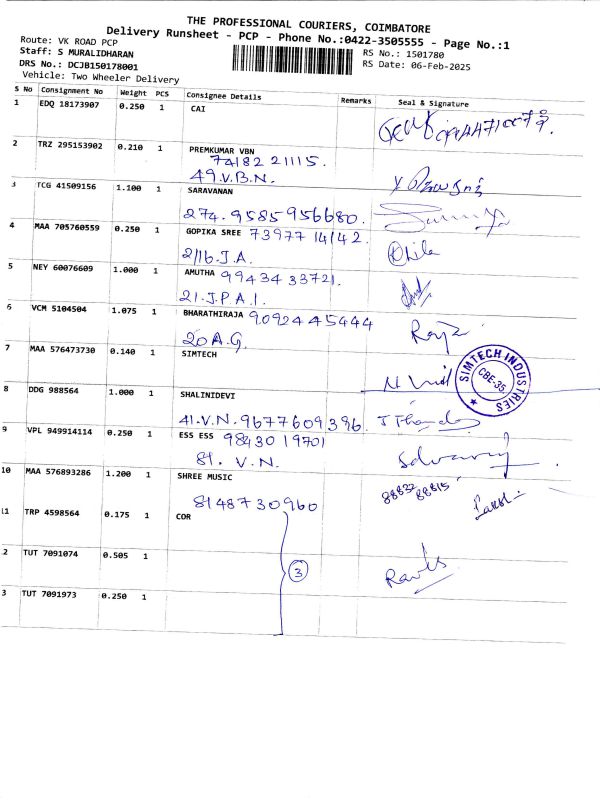 THE PROFESSIONAL COURIERS, COIMBATORE
Delivery Runsheet - PCP - Phone No.:0422-3505555 - Page No.:1
Route: VK ROAD PCP
RS No.: 1501780
Staff: S MURALIDHARAN
RS Date: 06-Feb-2025
DRS No.: DCJB150178001
Vehicle: Two Wheeler Delivery
S No Consignment No Weight PCS Consignee Details Remarks Seal & Signature
1 EDQ 18173907 0.250 1 CAI
2 TRZ 295153902 0.210 1 PREMKUMAR VBN
74182 21115.
49.V.B.N.
3 TCG 41509156 1.100 1 SARAVANAN
274. 9585956680.
4 MAA 705760559 0.250 1 GOPIKA SREE 73977 14142.
2/16.J.A.
5 NEY 60076609 1.000 1 AMUTHA 99434 33721.
21.J.P.A.1.
6 VCM 5104504 1.075 1 BHARATHIRAJA 9092445444
20 A.G.
7 MAA 576473730 0.140 1 SIMTECH
SIMTECH INDUSTRIES
CBE-35.
8 DDG 988564 1.000 1 SHALINIDEVI
41.V.N. 9677609396.
9 VPL 949914114 0.250 1 ESS ESS 98430 19701
81. V.N.
10 MAA 576893286 1.200 1 SHREE MUSIC
8148730960
88832 88815
11 TRP 4598564 0.175 1 COR
2 TUT 7091074 0.505 1
3
3 TUT 7091973 0.250 1